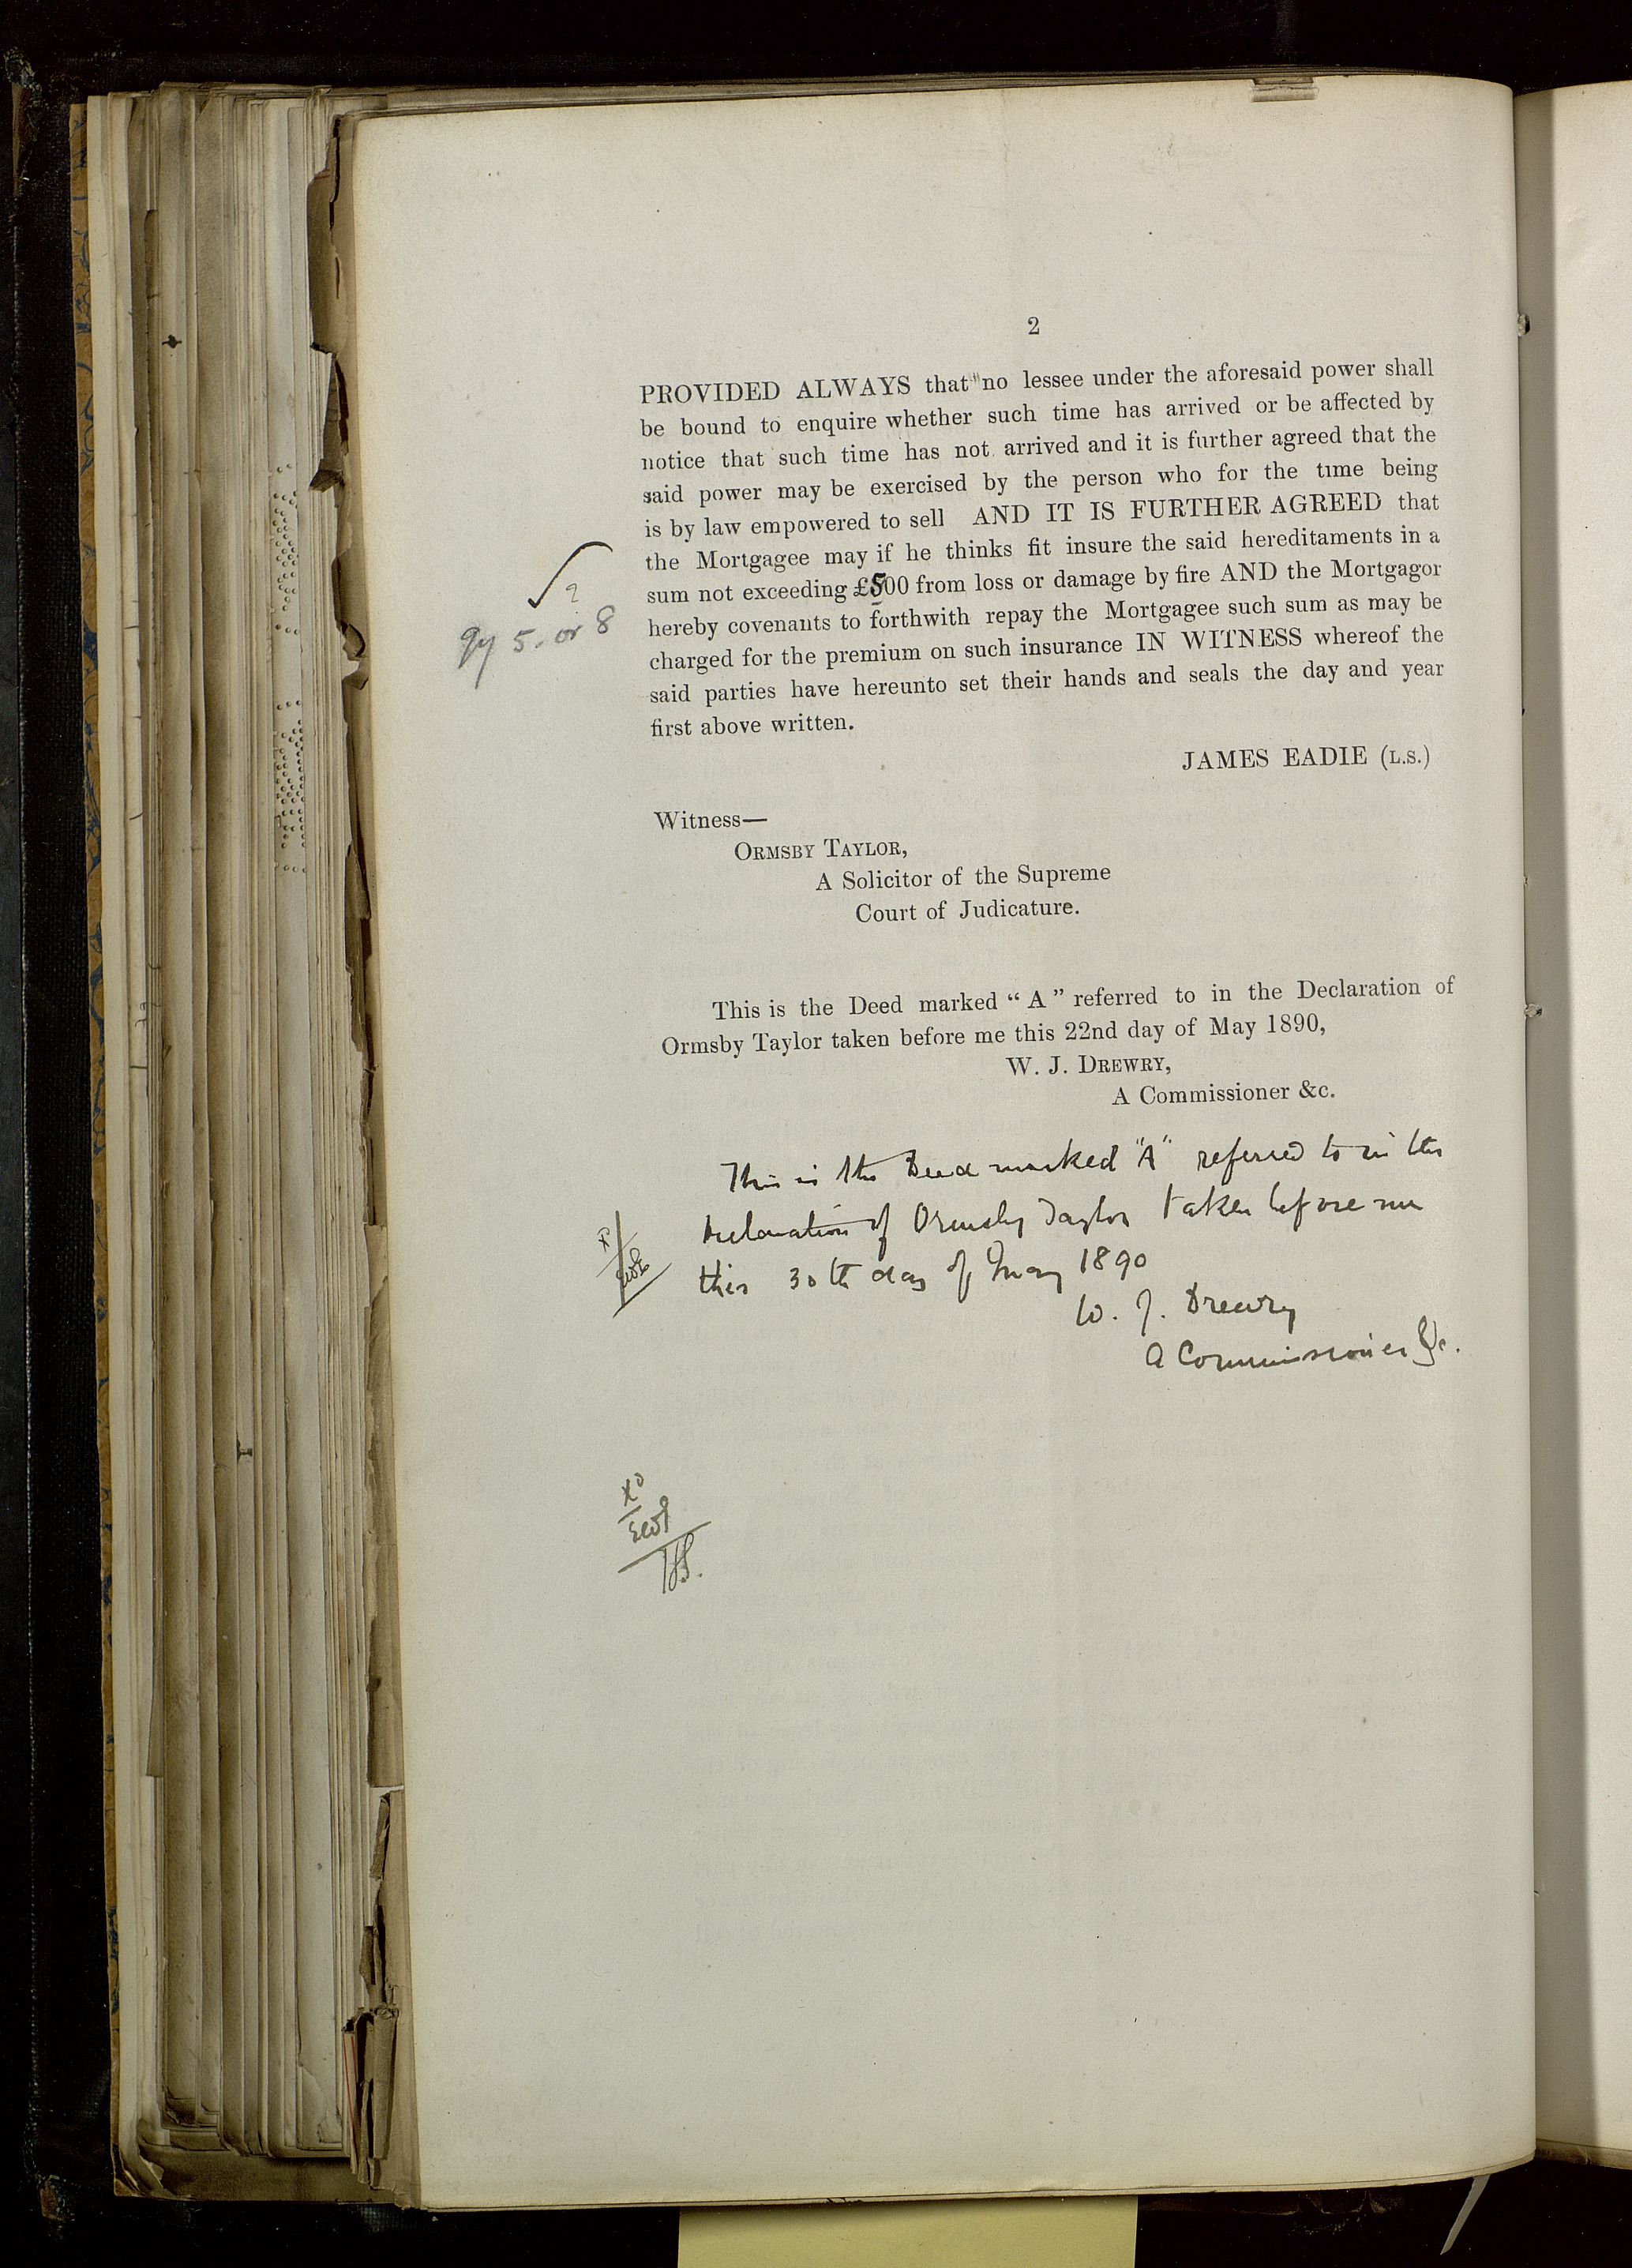 2
PROVIDED ALWAYS that no lessee under the aforesaid power shall
be bound to enquire whether such time has arrived or be affected by
notice that such time has not arrived and it is further agreed that the
said power may be exercised by the person who for the time being
is by law empowered to sell AND IT IS FURTHER AGREED that
the Mortgagee may if he thinks fit insure the said hereditaments in a
sum not exceeding £500 from loss or damage by fire AND the Mortgagor
hereby covenants to forthwith repay the Mortgagee such sum as may be
charged for the premium on such insurance IN WITNESS whereof the
said parties have hereunto set their hands and seals the day and year
first above written.
?
qy 5. or 8
JAMES EADIE (L.S.)
Witness—
ORMSBY TAYLOR,
A Solicitor of the Supreme
Court of Judicature.
This is the Deed marked "A" referred to in the Declaration of
Ormsby Taylor taken before me this 22nd day of May 1890,
W. J. DREWRY,
A Commissioner &c.
This is the Deed marked "A" referred to in the
Declaration of Ormsby Taylor taken before me
this 30th day of May 1890
W. J. Drewry
A Commissioner &c.